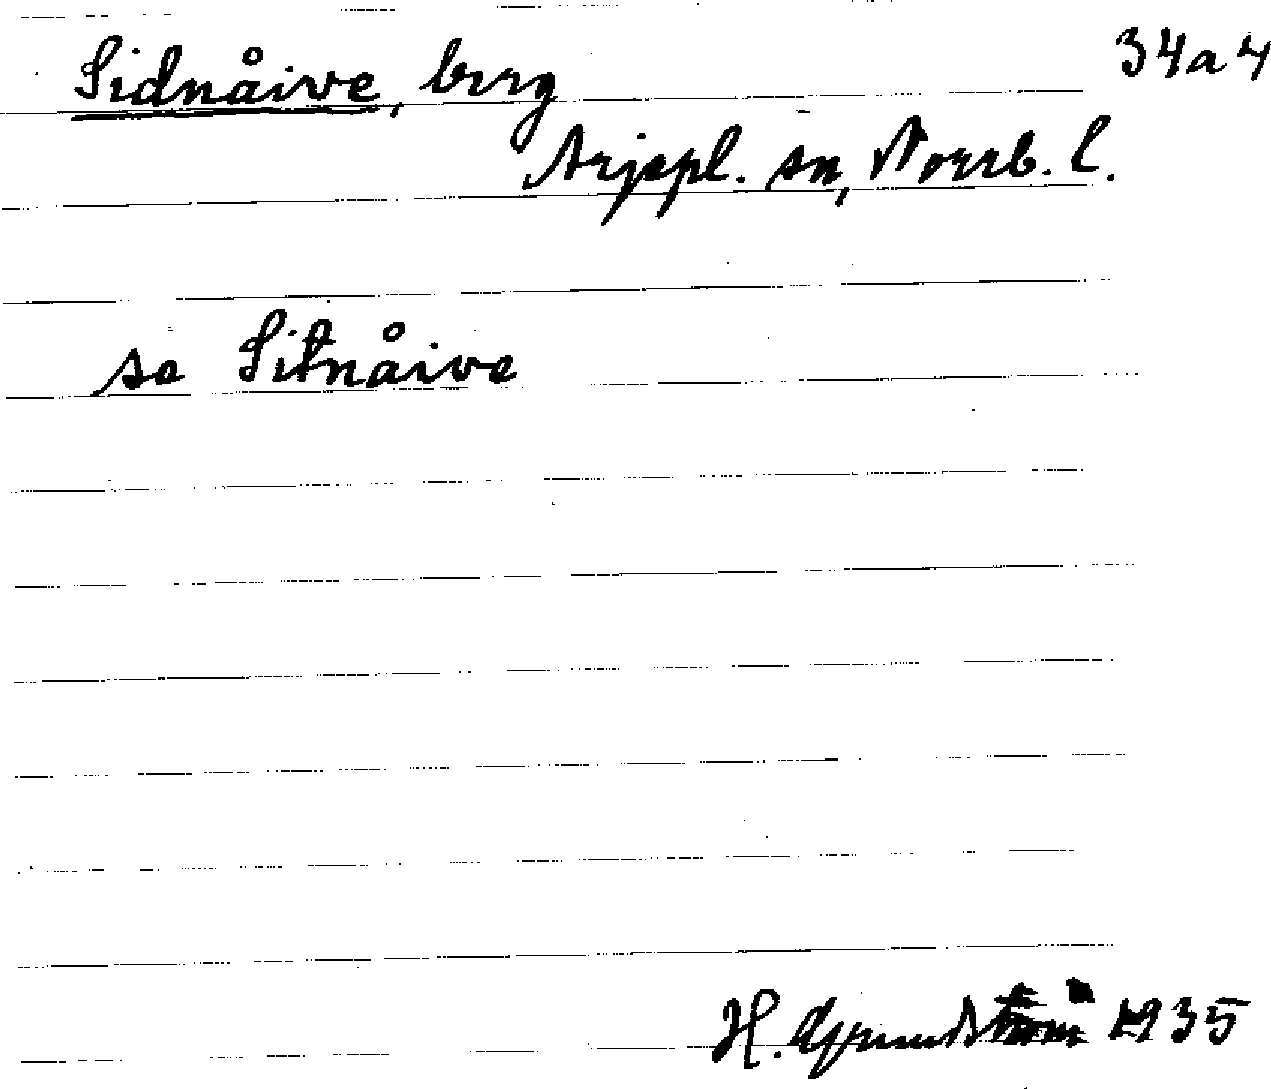 Sidnåive, berg 34a4
Arjepl. sn, Norrb. l.
se Sitnåive
H. Grundström 1935